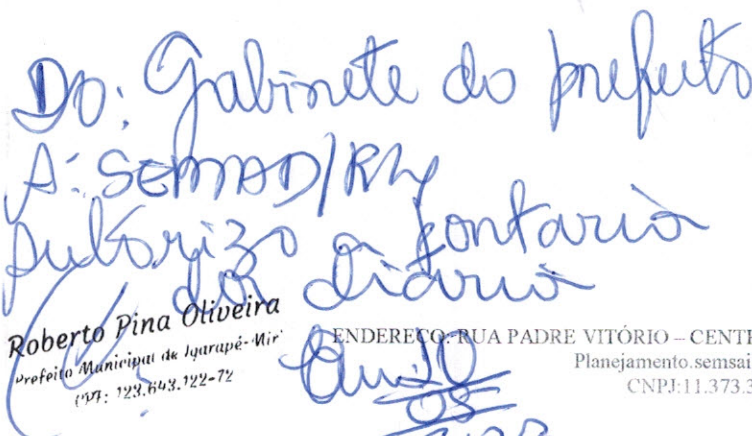 Do: Gabinete do prefeito
A: SEMAD/RH
Autorizo a portaria
de diária
Roberto Pina Oliveira
Prefeito Municipal de Igarapé-Miri
CPF: 123.643.122-72
ENDEREÇO: RUA PADRE VITÓRIO – CENTR
Planejamento.semsai
CNPJ:11.373.3
Em 10
05